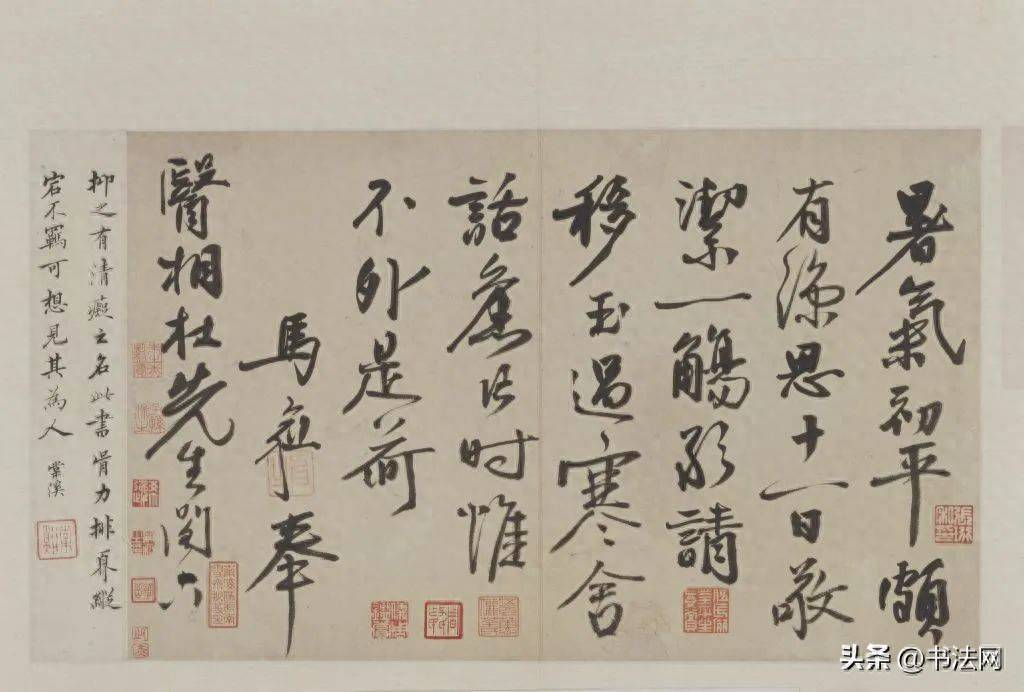 暑氣初平頗
有涼思十一日敬
潔一觴躬請
移玉過寒舍
話舊片时惟
不外是荷
馬愈奉
醫相杜先生閣下
抑之有清癡之名此書骨力排奡縱
宕不羈可想見其為人 棠溪
头条 @书法网